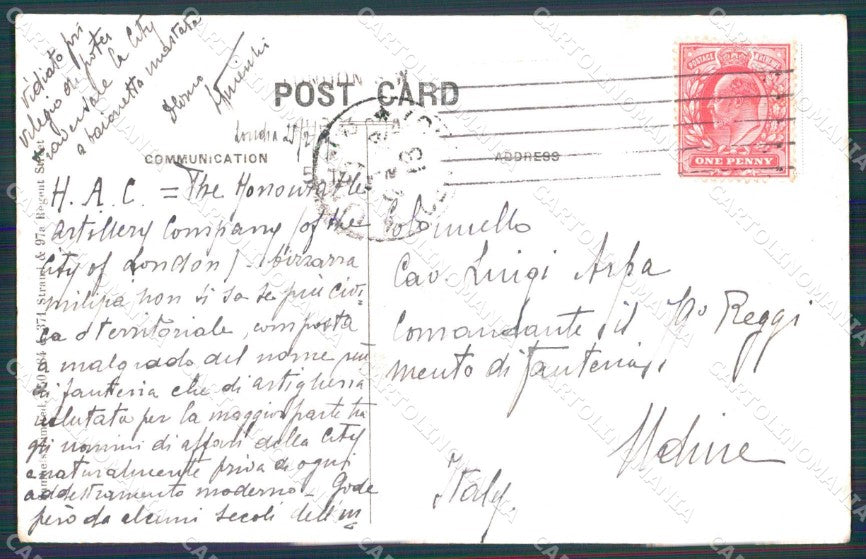 POST CARD
COMMUNICATION
ADDRESS
ONE PENNY
POSTAGE
Londra
H.A.C. = The Honourable
Artillery Company (of the
City of London) - bizzarra
milizia non si sa se più civi-
ca o territoriale, composta
a malgrado del nome più
di fanteria che di artiglieria
reclutata per la maggior parte tra
gli uomini di affari della City
e naturalmente priva di ogni
addestramento moderno - Gode
però da alcuni secoli dell'in
vidiato pri
vilegio di poter
traversare la City
a baionetta inastata
Colonnello
Cav. Luigi Arpa
Comandante il Reggi
mento di fanteria
Udine
Italy
371, Strand, & 97a Regent Street
CARTOLINOMANIA